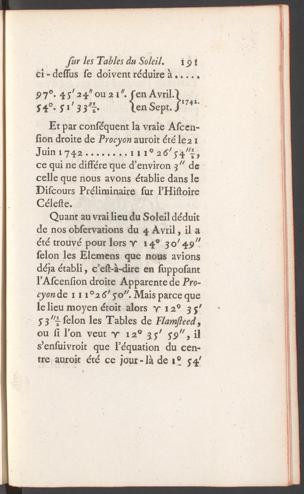 sur les Tables du Soleil. 191
ci-dessus se doivent réduire à.....
97°. 45′ 24″ ou 21″. {en Avril.}
54°. 51′ 33″½. {en Sept.} 1742.
Et par conséquent la vraie Ascen-
sion droite de Procyon auroit été le 21
Juin 1742........ 111° 26′ 54″½,
ce qui ne différe que d'environ 3″ de
celle que nous avons établie dans le
Discours Préliminaire sur l'Histoire
Céleste.
Quant au vrai lieu du Soleil déduit
de nos observations du 4 Avril, il a
été trouvé pour lors ♈ 14° 30′ 49″
selon les Elemens que nous avions
déja établi, c'est-à-dire en supposant
l'Ascension droite Apparente de Pro-
cyon de 111° 26′ 50″. Mais parce que
le lieu moyen étoit alors ♈ 12° 35′
53″½ selon les Tables de Flamsteed,
ou si l'on veut ♈ 12° 35′ 59″, il
s'ensuivroit que l'équation du cen-
tre auroit été ce jour-là de 1° 54′